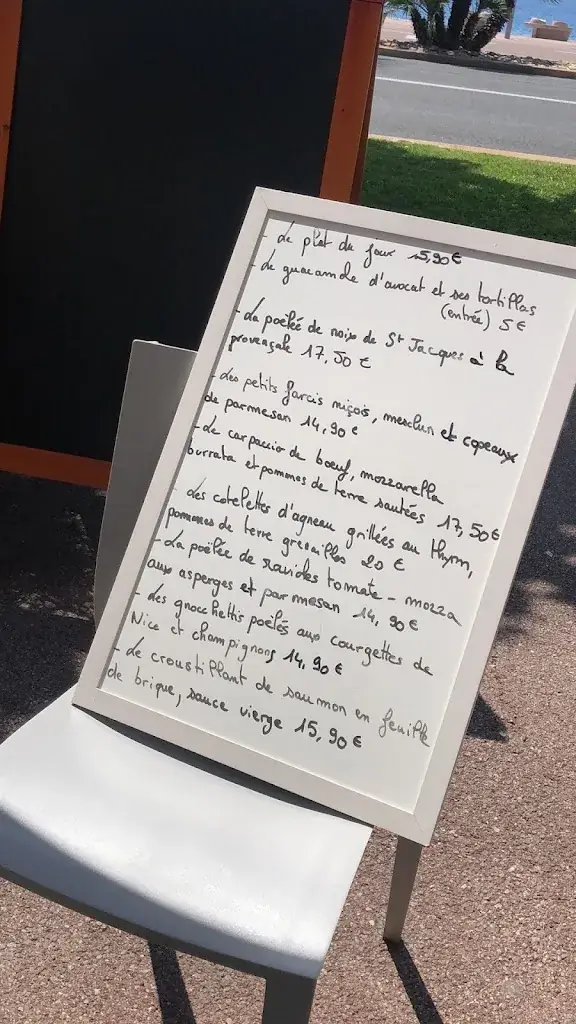 - Le plat du jour 15,90€
- Le guacamole d'avocat et ses tortillas
(entrée) 5€
- La poêlée de noix de St Jacques à la
provençale 17,50 €
- Les petits farcis niçois, mesclun et copeaux
de parmesan 14,90 €
- Le carpaccio de boeuf, mozzarella
burrata et pommes de terre sautées 17,50€
- Les cotelettes d'agneau grillées au thym,
pommes de terre grenailles 20 €
- La poêlée de ravioles tomate - mozza
aux asperges et parmesan 14,90€
- Les gnocchettis poêlés aux courgettes de
Nice et champignons 14,90€
- Le croustillant de saumon en feuille
de brique, sauce vierge 15,90€